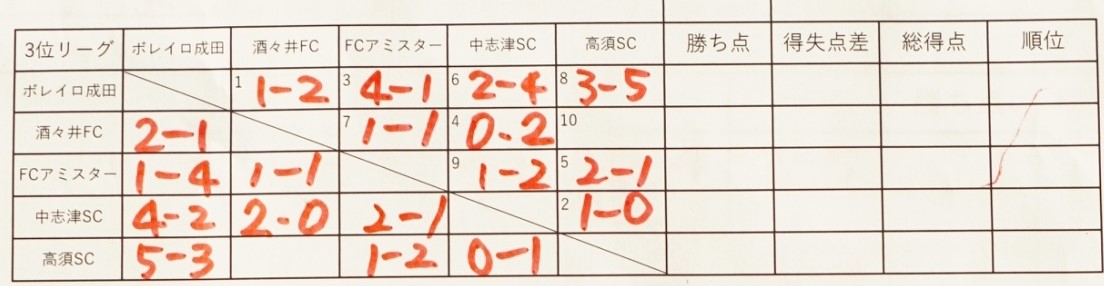 3位リーグ ボレイロ成田 酒々井FC FCアミスター 中志津SC 高須SC 勝ち点 得失点差 総得点 順位
ボレイロ成田 1 1-2 3 4-1 6 2-4 8 3-5
酒々井FC 2-1 7 1-1 4 0-2 10
FCアミスター 1-4 1-1 9 1-2 5 2-1
中志津SC 4-2 2-0 2-1 2 1-0
高須SC 5-3 1-2 0-1